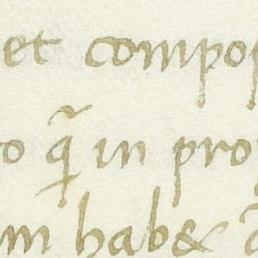 et compo
o q̃ in pro
m hab&